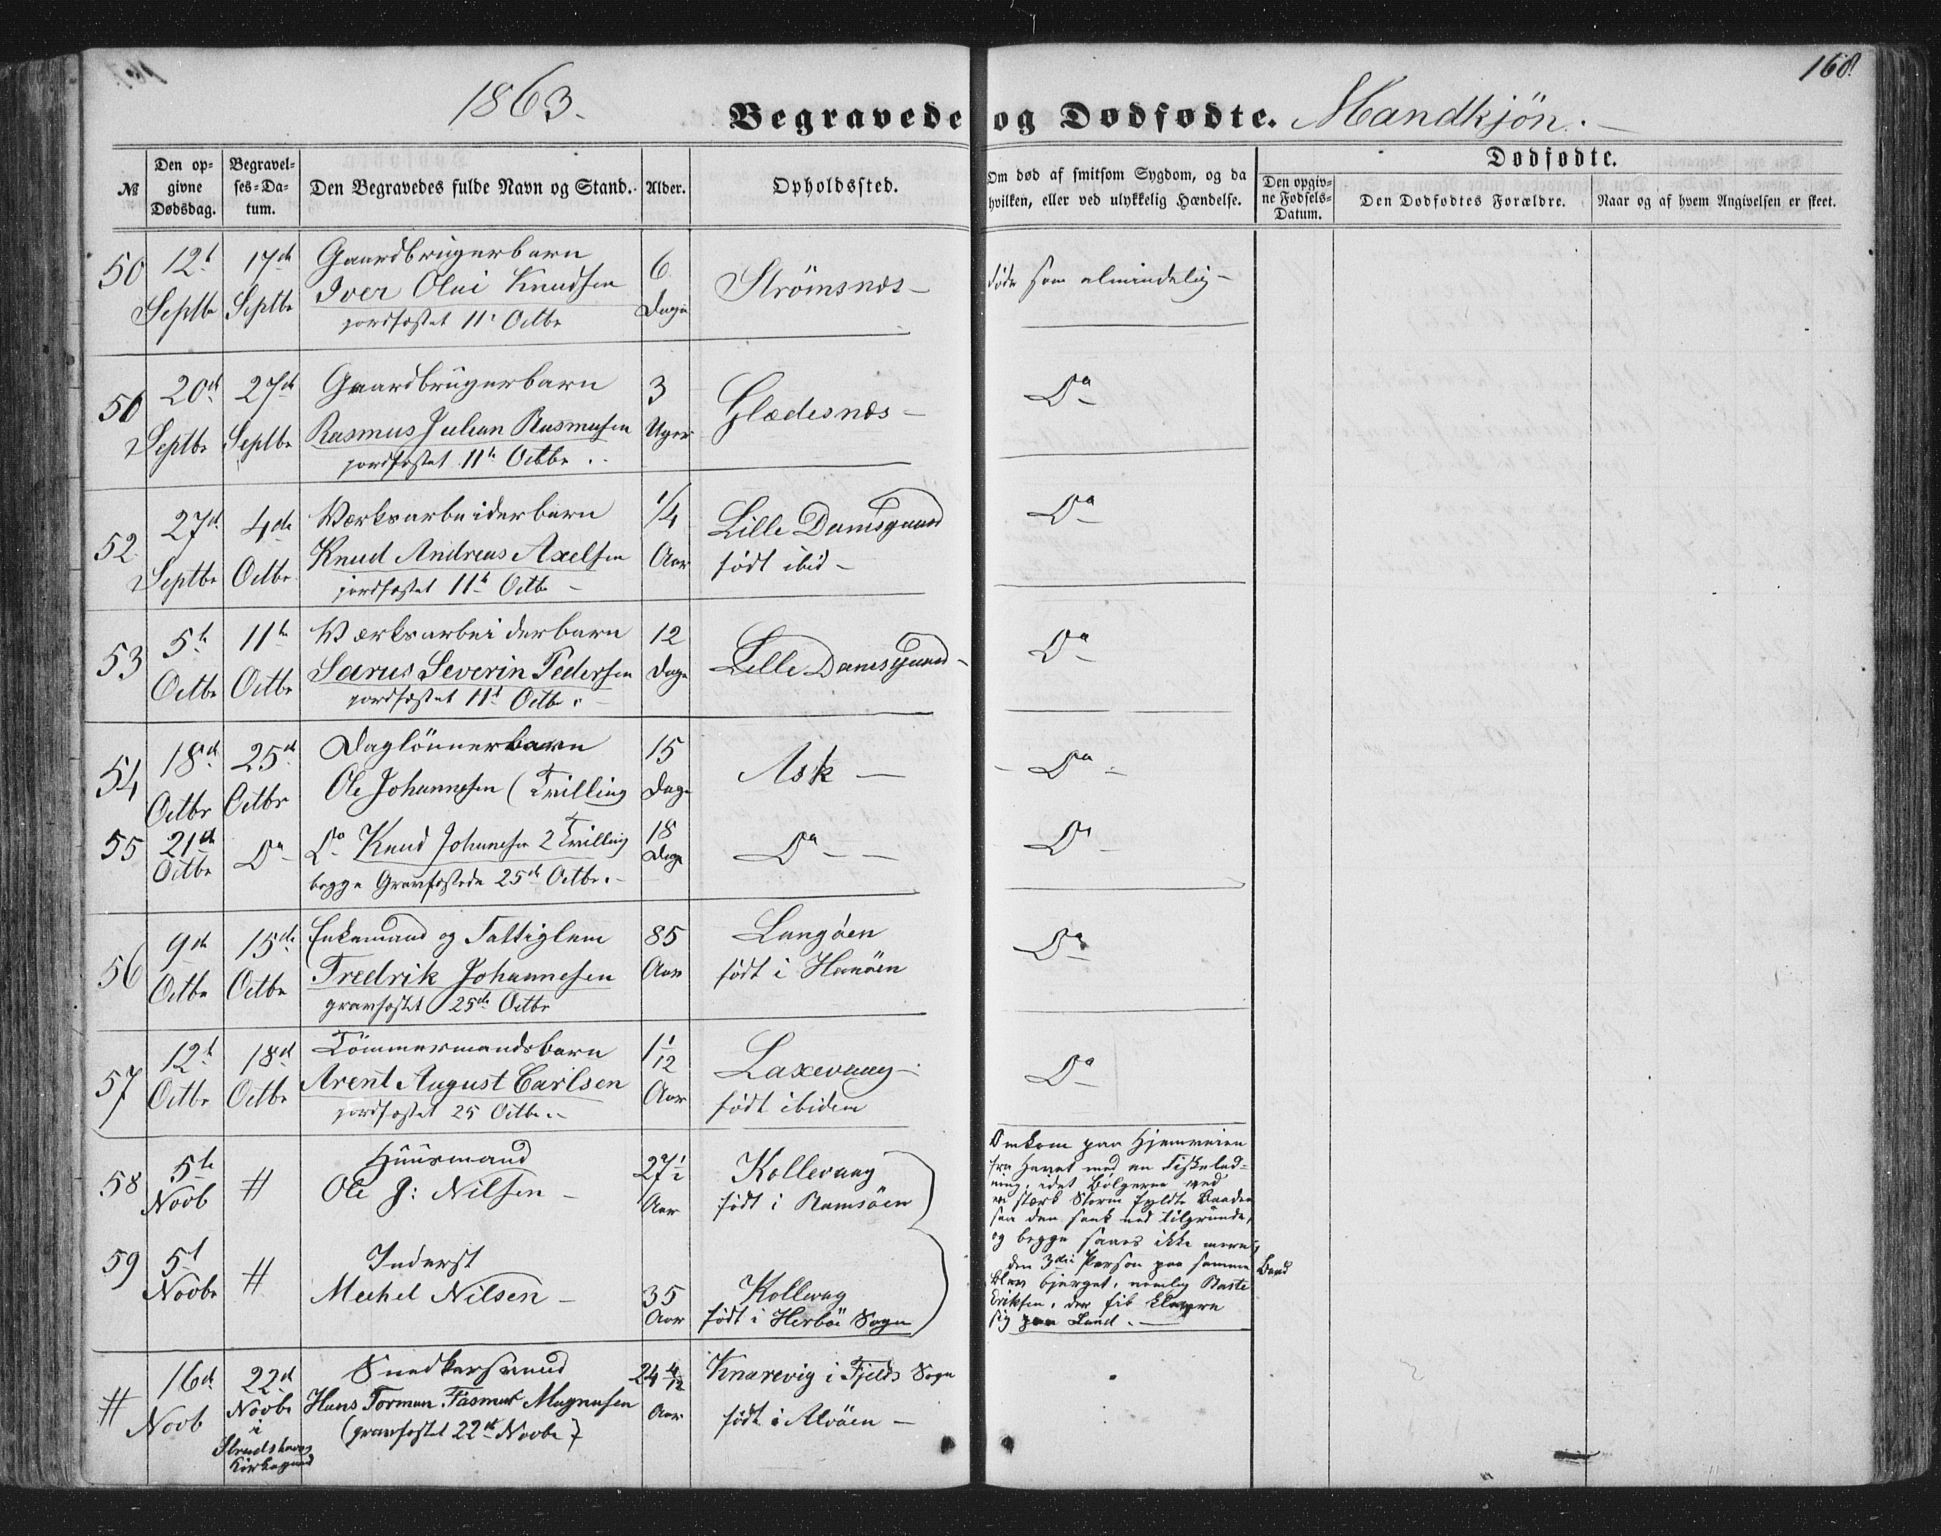 1863.
Begravede og Dødfødte. Mandkjön.
168.
№
Den opgivne Dødsdag.
Begravelses-Datum.
Den Begravedes fulde Navn og Stand.
Alder.
Opholdssted.
Om død af smitsom Sygdom, og da hvilken, eller ved ulykkelig Hændelse.
Dødfødte.
Den opgivne Fødsels-Datum.
Den Dødfødtes Forældre.
Naar og af hvem Angivelsen er skeet.
50 12t Septbr 17de Septbr Gaardbrugerbarn 6 Dage Strömsnæs
Iver Olai Knudsen
jordfæstet 11t Octbr
døde som almindelig
50 20de Septbr 27de Septbr Gaardbrugerbarn 3 Uger Glædesnæs
Rasmus Julian Rasmusen
jordfæstet 11te Octbr.
Do
52 27de Septbr 4de Octbr Værksarbeiderbarn 1/4 Aar Lille Damsgaard
Knud Andreas Axelsen født ibid
jordfæstet 11te Octbr
Do
53 5te Octbr 11te Octbr Værksarbeiderbarn 12 Dage Lille Damsgaard
Severin Pedersen
jordfæstet 11t Octbr.
Do
54 18de Octbr 25de Octbr Daglönnerbarn 15 Dage Ask
Ole Johannesen (Tvilling
Do
55 21de Octbr Do Do Knud Johannesen 2 Tvilling 18 Dage Do
begge Gravfæstede 25de Octbr.
Do
56 9de Octbr 15de Octbr Enkemand og Fattiglem 85 Aar Langöen
Fredrik Johannesen født i Hanöen
gravfæstet 25de Octbr
Do
57 12t Octbr 18de Octbr Tömmermandsbarn 1 1/12 Aar Laxevaag
Arent August Carlsen født ibidem
jordfæstet 25 Octbr.
Do
58 5te Novb # Huusmand 27 1/2 Aar Kollevaag
Ole J: Nilsen født i Ramsöen
Omkom paa Hjemveien
fra Havet med en Fiskelad-
ning, idet Bölgerne ved
en stærk Storm fyldte Baaden
saa den sank ned tilgrunde,
og begge saaes ikke mere;
den 3die Person paa samme Baad
blev bjerget, nemlig Baste
Eriksen, der fik klavre
sig paa Land.
59 5t Novbr # Inderst 35 Aar Kollevag
Mechel Nilsen født i Herlöe Sogn
# 16de Novb 22de Novbr i Kirkegaard Snedkersvend 24 4/12 Aar Knarevig i Fjelds Sogn
Hans Torman Fasmer Magnusen født i Alvöen
(gravfæstet 22de Novbr)